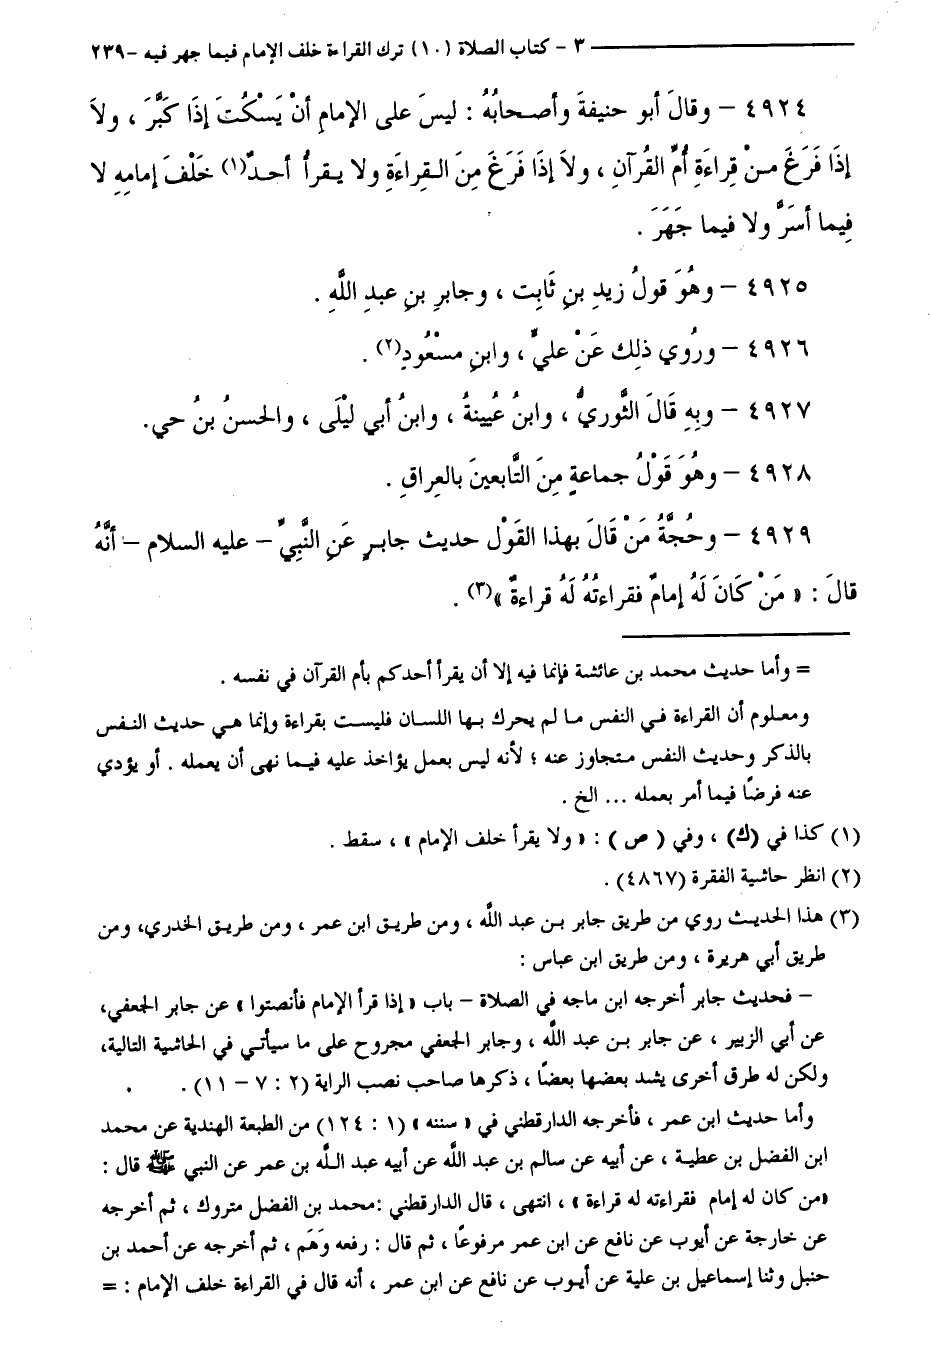 ٣ - كتاب الصلاة (١٠) ترك القراءة خلف الإمام فيما جهر فيه - ٢٣٩
٤٩٢٤ - وقالَ أبو حنيفةَ وأصحابُهُ : ليسَ على الإمامِ أنْ يَسْكُتَ إذَا كَبَّرَ ، ولاَ
إذَا فَرَغَ منْ قِراءَةِ أُمِّ القُرآنِ ، ولاَ إذَا فَرَغَ مِنَ القِراءَةِ ولا يقرأُ أحدٌ(١) خَلْفَ إمامِهِ لا
فِيما أسَرَّ ولا فيما جَهَرَ .
٤٩٢٥ - وهُوَ قولُ زيدِ بنِ ثَابِت ، وجابرِ بنِ عبدِ اللَّهِ .
٤٩٢٦ - ورُوي ذلِك عَنْ عليٍّ ، وابنِ مسْعُودٍ(٢) .
٤٩٢٧ - وبِهِ قَالَ الثَّوريُّ ، وابنُ عُيينةُ ، وابنُ أبي ليْلَى ، والحسنُ بنُ حي.
٤٩٢٨ - وهُوَ قَوْلُ جماعةٍ مِنَ التَّابعينَ بالعِراقِ .
٤٩٢٩ - وحُجَّةُ مَنْ قَالَ بهذا القَوْل حديث جابرٍ عَنِ النَّبِيِّ - عليه السلام - أنَّهُ
قالَ : « مَنْ كَانَ لَهُ إمامٌ فقراءتُهُ لَهُ قراءةٌ »(٣) .
= وأما حديث محمد بن عائشة فإنما فيه إلا أن يقرأ أحدكم بأم القرآن في نفسه .
ومعلوم أن القراءة في النفس ما لم يحرك بها اللسان فليست بقراءة وإنما هي حديث النفس
بالذكر وحديث النفس متجاوز عنه ؛ لأنه ليس بعمل يؤاخذ عليه فيما نهى أن يعمله . أو يؤدي
عنه فرضًا فيما أمر بعمله ... الخ .
(١) كذا في (ك) ، وفي ( ص ) : « ولا يقرأ خلف الإمام » ، سقط .
(٢) انظر حاشية الفقرة (٤٨٦٧) .
(٣) هذا الحديث روي من طريق جابر بن عبد اللَّه ، ومن طريق ابن عمر ، ومن طريق الخدري، ومن
طريق أبي هريرة ، ومن طريق ابن عباس :
- فحديث جابر أخرجه ابن ماجه في الصلاة - باب « إذا قرأ الإمام فأنصتوا » عن جابر الجعفي،
عن أبي الزبير ، عن جابر بن عبد اللَّه ، وجابر الجعفي مجروح على ما سيأتي في الحاشية التالية،
ولكن له طرق أخرى يشد بعضها بعضًا ، ذكرها صاحب نصب الراية (٢ : ٧ - ١١) .
وأما حديث ابن عمر ، فأخرجه الدارقطني في « سننه » (١ : ١٢٤) من الطبعة الهندية عن محمد
ابن الفضل بن عطية ، عن أبيه عن سالم بن عبد اللَّه عن أبيه عبد اللَّه بن عمر عن النبي ﷺ قال :
«من كان له إمام فقراءته له قراءة » ، انتهى ، قال الدارقطني :محمد بن الفضل متروك ، ثم أخرجه
عن خارجة عن أيوب عن نافع عن ابن عمر مرفوعًا ، ثم قال : رفعه وَهَم ، ثم أخرجه عن أحمد بن
حنبل وثنا إسماعيل بن علية عن أيوب عن نافع عن ابن عمر ، أنه قال في القراءة خلف الإمام : =